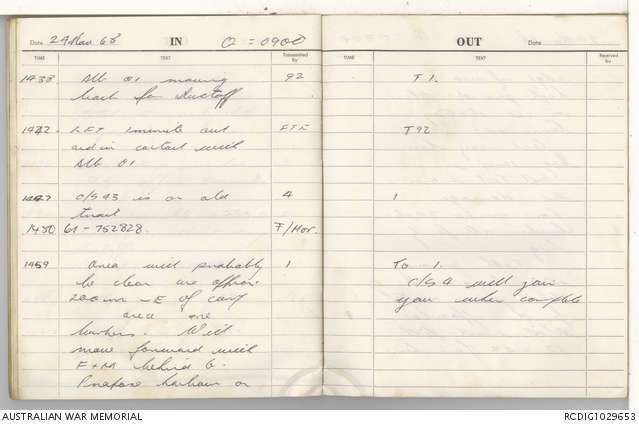 Date 24 Mar 68 IN Q = 0900
TIME TEXT Transmitted by
1433. Alb 01 moving 92
back for Dustoff
1442. LFT 1 minute out FTE
and in contact with
Alb 01
1447 C/S 43 is on old 4
1450 61 - 752828. F/Mor.
1459 Area will probably 1
be clear are approx
200m - E of camp
area
bunkers. Will
move forward with
F + M behind 6.
Propose harbour on
OUT Date
TIME TEXT Received by
T 1.
T 92
1
To 1.
C/S 4 will join
you when complete
AUSTRALIAN WAR MEMORIAL
RCDIG1029653